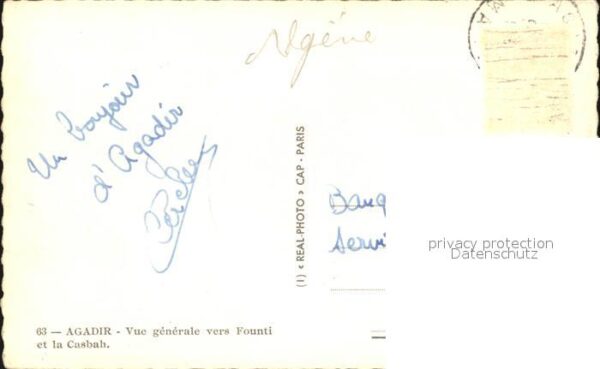 Algérie
Un bonjour
d'Agadir
(1) « REAL-PHOTO » CAP - PARIS
Banq
Servi
privacy protection
Datenschutz
63 — AGADIR - Vue générale vers Founti
et la Casbah.